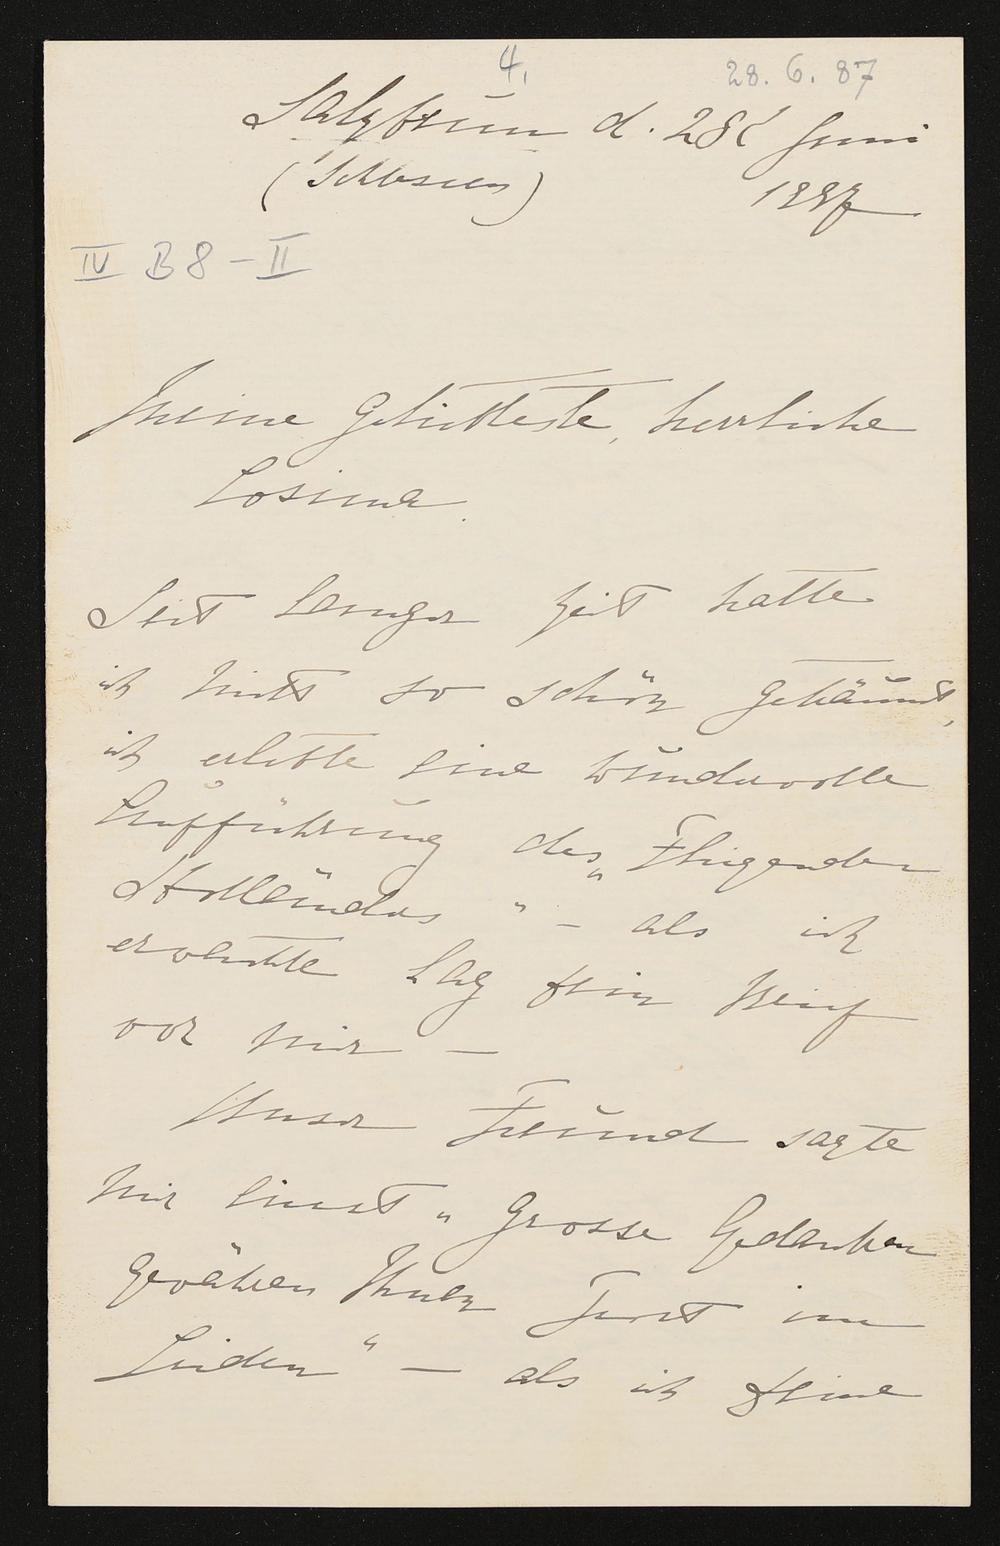 4.
28. 6. 87
Salzbrunn d. 28t Juni
(Schlesien) 1887.
IV B 8 - II
Meine Geliebteste, herrliche
Cosima.
Seit langer Zeit hatte
ich nicht so schön geträumt,
ich erlebte eine wundervolle
Aufführung des „Fliegenden
Holländers" – als ich
erwachte lag Dein Brief
vor mir –
Unser Freund sagte
mir einst „Grosse Gedanken
gewähren Ihnen Trost im
Leiden" – als ich Deine